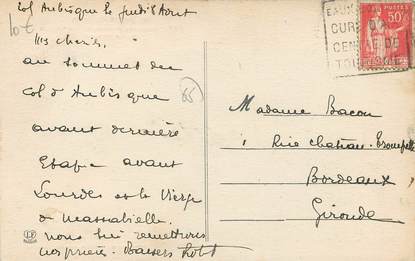 Col Aubisque le jeudi 8 Aout
10€
Mes cheries,
au sommet du
Col d'Aubisque
avant dernière
Etape avant
Lourdes et la Vierge
de Massabielle.
nous lui remettrons
vos prières. Baisers
65
EAUX
CURE D'AIR
CENTRE DE
TOURISME
POSTES
50c
Madame Bacon
1 Rue Chateau Trompette
Bordeaux
Gironde